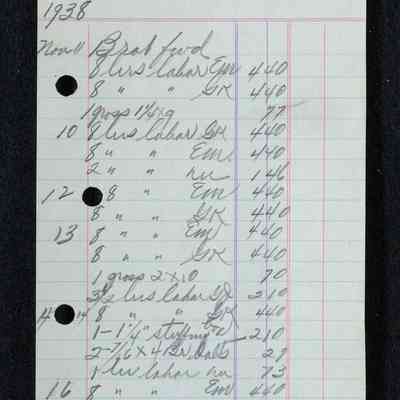 1938
Nov 11 Brot fwd
8 hrs labor Em 440
8 " " GK 440
1 gross 1 1/4 x 9 77
10 8 hrs labor GK 440
8 " " Em 440
2 " " nu 146
12 8 " Em 440
8 " " GK 440
13 8 " " Em 440
8 " " GK 440
1 gross 2 x 10 70
3 1/2 hrs labor 210
14 8 " " GK 440
1 - 1 1/4" 210
2 - 7/16 x 4 Br bolts 29
1 hr labor nu 73
16 8 " " Em 440